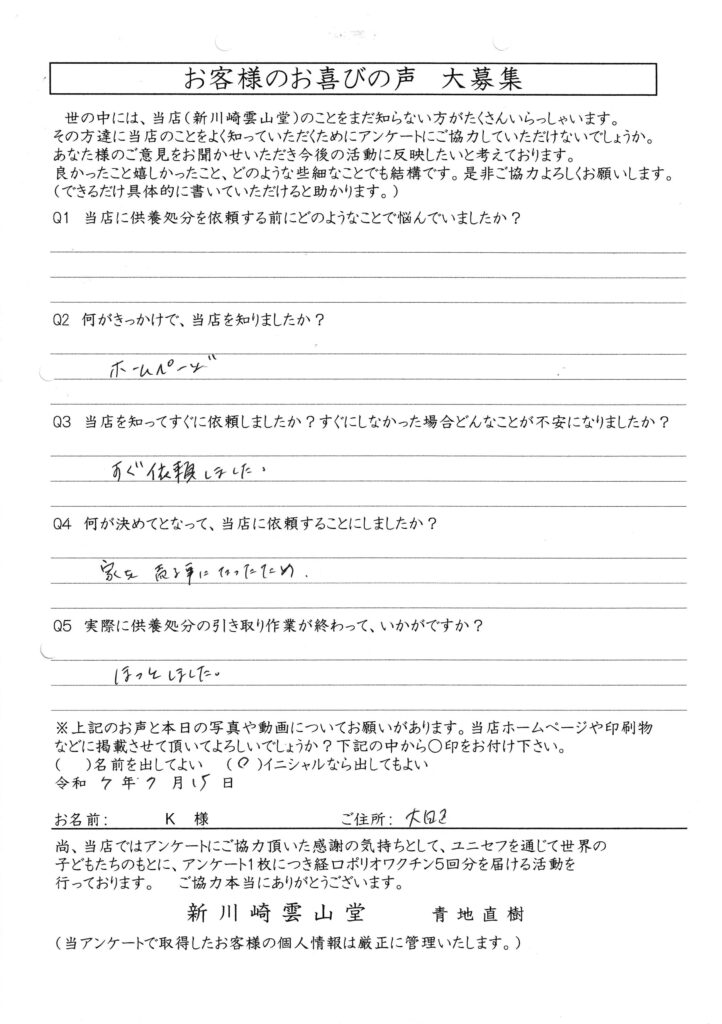 お客様のお喜びの声 大募集
世の中には、当店(新川崎雲山堂)のことをまだ知らない方がたくさんいらっしゃいます。
その方達に当店のことをよく知っていただくためにアンケートにご協力していただけないでしょうか。
あなた様のご意見をお聞かせいただき今後の活動に反映したいと考えております。
良かったこと嬉しかったこと、どのような些細なことでも結構です。是非ご協力よろしくお願いします。
(できるだけ具体的に書いていただけると助かります。)
Q1 当店に供養処分を依頼する前にどのようなことで悩んでいましたか?
Q2 何がきっかけで、当店を知りましたか?
ホームページ
Q3 当店を知ってすぐに依頼しましたか?すぐにしなかった場合どんなことが不安になりましたか?
すぐ依頼しました。
Q4 何が決めてとなって、当店に依頼することにしましたか?
家を売る事になったため.
Q5 実際に供養処分の引き取り作業が終わって、いかがですか?
ほっとしました。
※上記のお声と本日の写真や動画についてお願いがあります。当店ホームページや印刷物
などに掲載させて頂いてよろしいでしょうか?下記の中から○印をお付け下さい。
( )名前を出してよい (○)イニシャルなら出してもよい
令和 7 年 7 月 15 日
お名前: K 様 ご住所: 大田区
尚、当店ではアンケートにご協力頂いた感謝の気持ちとして、ユニセフを通じて世界の
子どもたちのもとに、アンケート1枚につき経口ポリオワクチン5回分を届ける活動を
行っております。 ご協力本当にありがとうございます。
新川崎雲山堂 青地直樹
(当アンケートで取得したお客様の個人情報は厳正に管理いたします。)